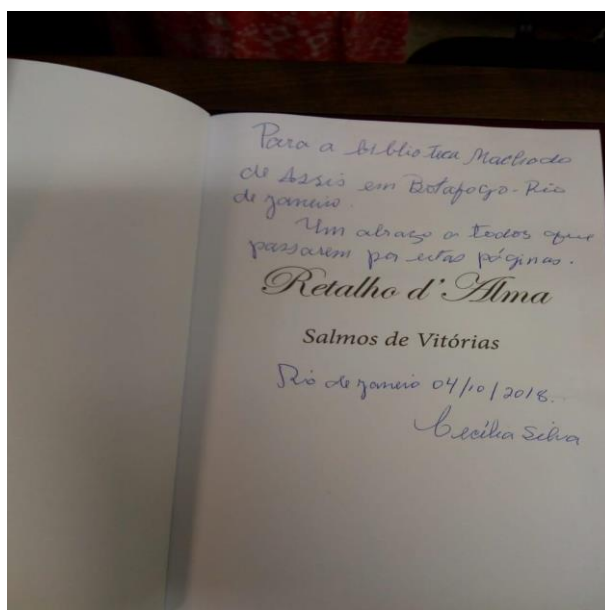 Para a biblioteca Machado
de Assis em Botafogo - Rio
de janeiro.
Um abraço a todos que
passarem por estas páginas.
Retalho d'Alma
Salmos de Vitórias
Rio de janeiro 04/10/2018.
Cecília Silva